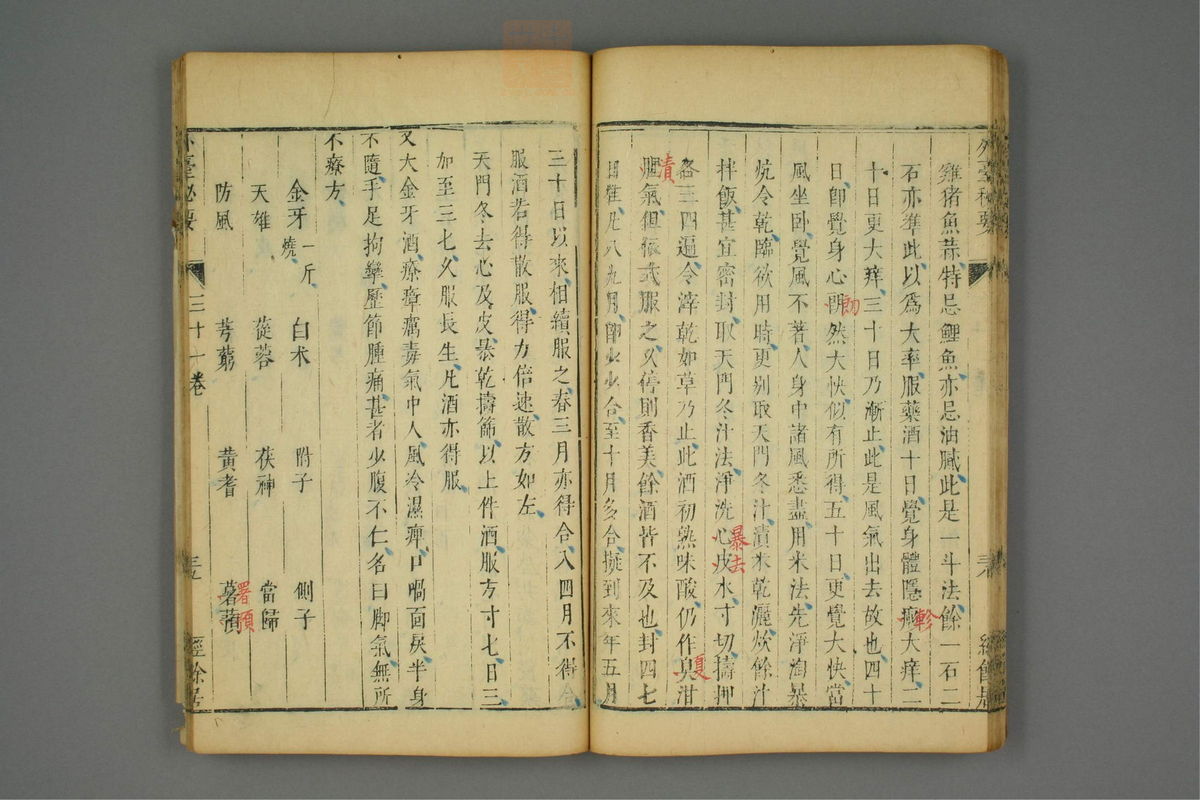 雞猪魚蒜特忌鯉魚亦忌油膩此是一斗法餘一石二
石亦準此以爲大率服藥酒十日覺身體隱大痒二
軫
十日更大痒三十日乃漸止此是風氣出去故也四十
日卽覺身心然大快似有所得五十日更覺大快當
風坐卧覺風不著人身中諸風悉盡用米法先淨淘暴
炕令乾臨欲用時更别取天門冬汁漬米乾灑炊餘汁
拌飯甚宜密封取天門冬汁法淨洗心皮水寸切擣押
暴去
各三四遍令滓乾如草乃止此酒初熟味酸仍作臭泔
夏
漬
氣但依式服之久停則香美餘酒皆不及也封四七
日凡八九月卽少少合至十月多合擬到來年五月
三十日以來相續服之春三月亦得合入四月不得合
服酒若得散服得力倍速散方如左
天門冬去心及皮暴乾擣篩以上件酒服方寸七日三
如至三七久服長生凡酒亦得服
又大金牙酒療瘴癘毒氣中人風冷濕痺口喎面戾半身
不隨手足拘攣歷節腫痛甚者少腹不仁名曰脚氣無所
不療方
金牙一斤燒 白朮 附子 側子
天雄 蓯蓉 茯神 當歸
防風 芎藭 黃耆 薯
署預
臺秘要 三十一卷
外臺秘要